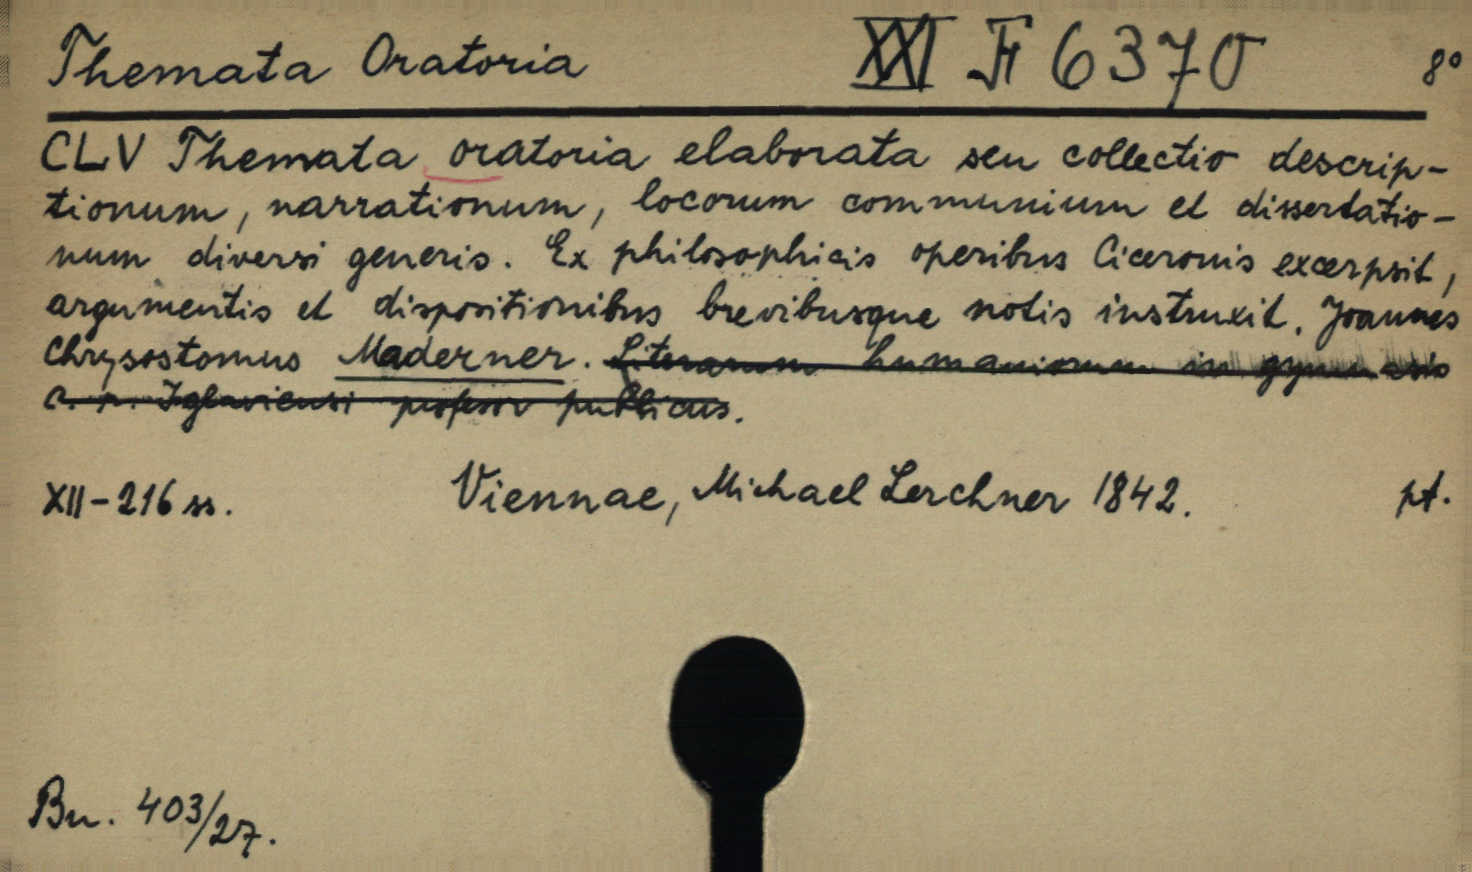 Themata Oratoria XXI F 6370 8°
CLV Themata oratoria elaborata seu collectio descrip-
tionum, narrationum, locorum communium et dissertatio-
num diversi generis. Ex philosophicis operibus Ciceronis excerpsit,
argumentis et dispositionibus brevibusque notis instruxit. Joannes
Chrysostomus Maderner. Literarum humaniorum in gymnasio
c. r. Iglaviensi professor publicus.
XII-216 ss. Viennae, Michael Lerchner 1842. pt.
Bn. 403/27.